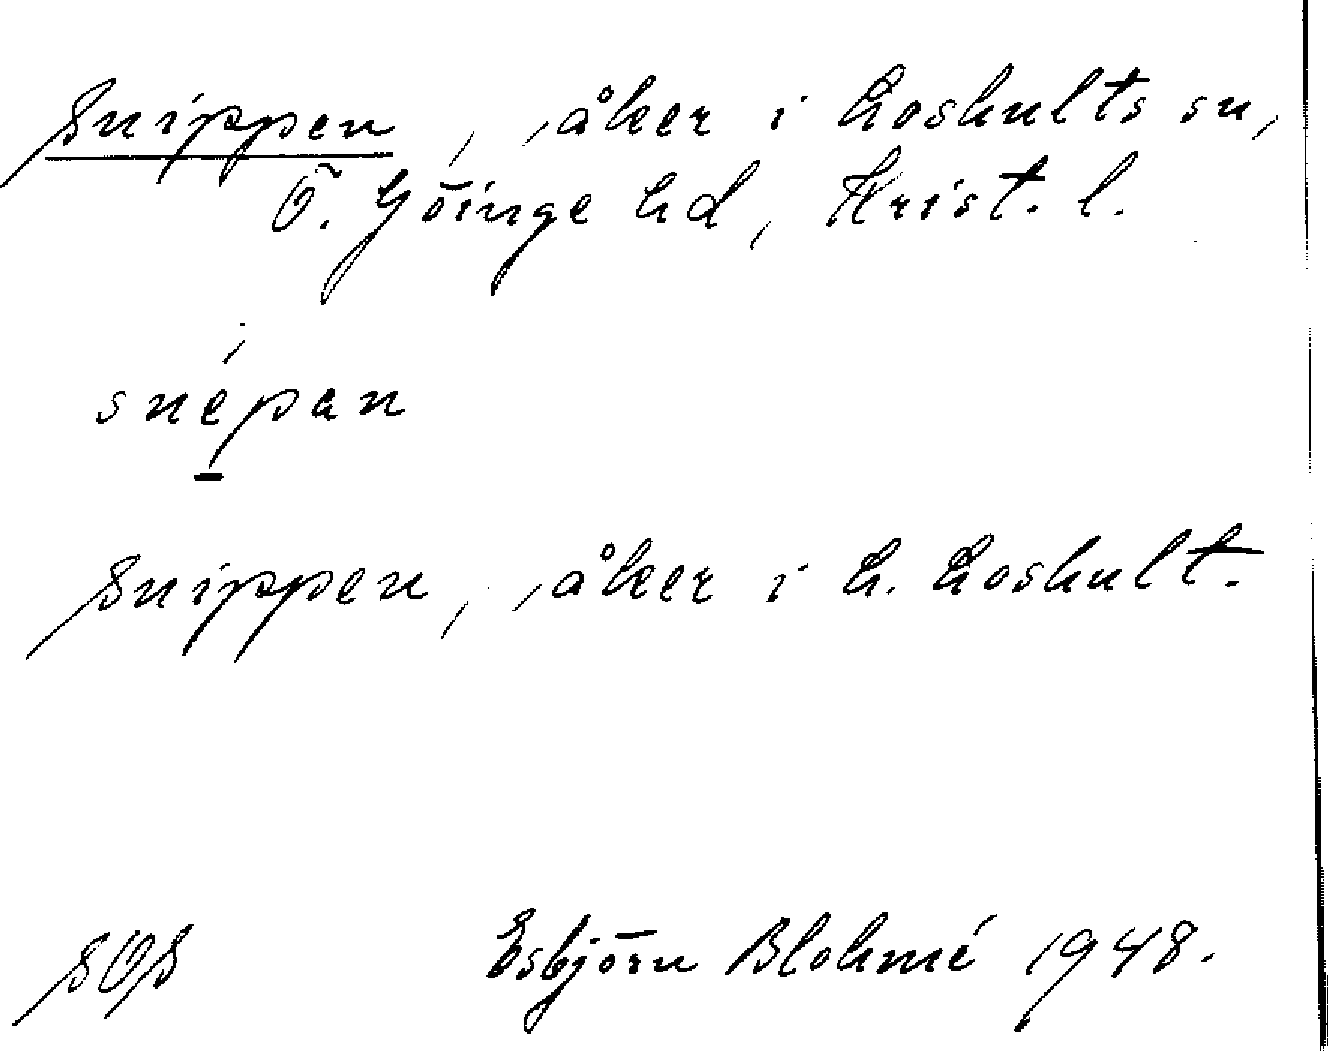 Snippen, åker i Loshults sn,
Ö. Göinge hd, Krist. l.
snépan
Snippen, åker i L. Loshult.
SOS Esbjörn Blohmé 1948.